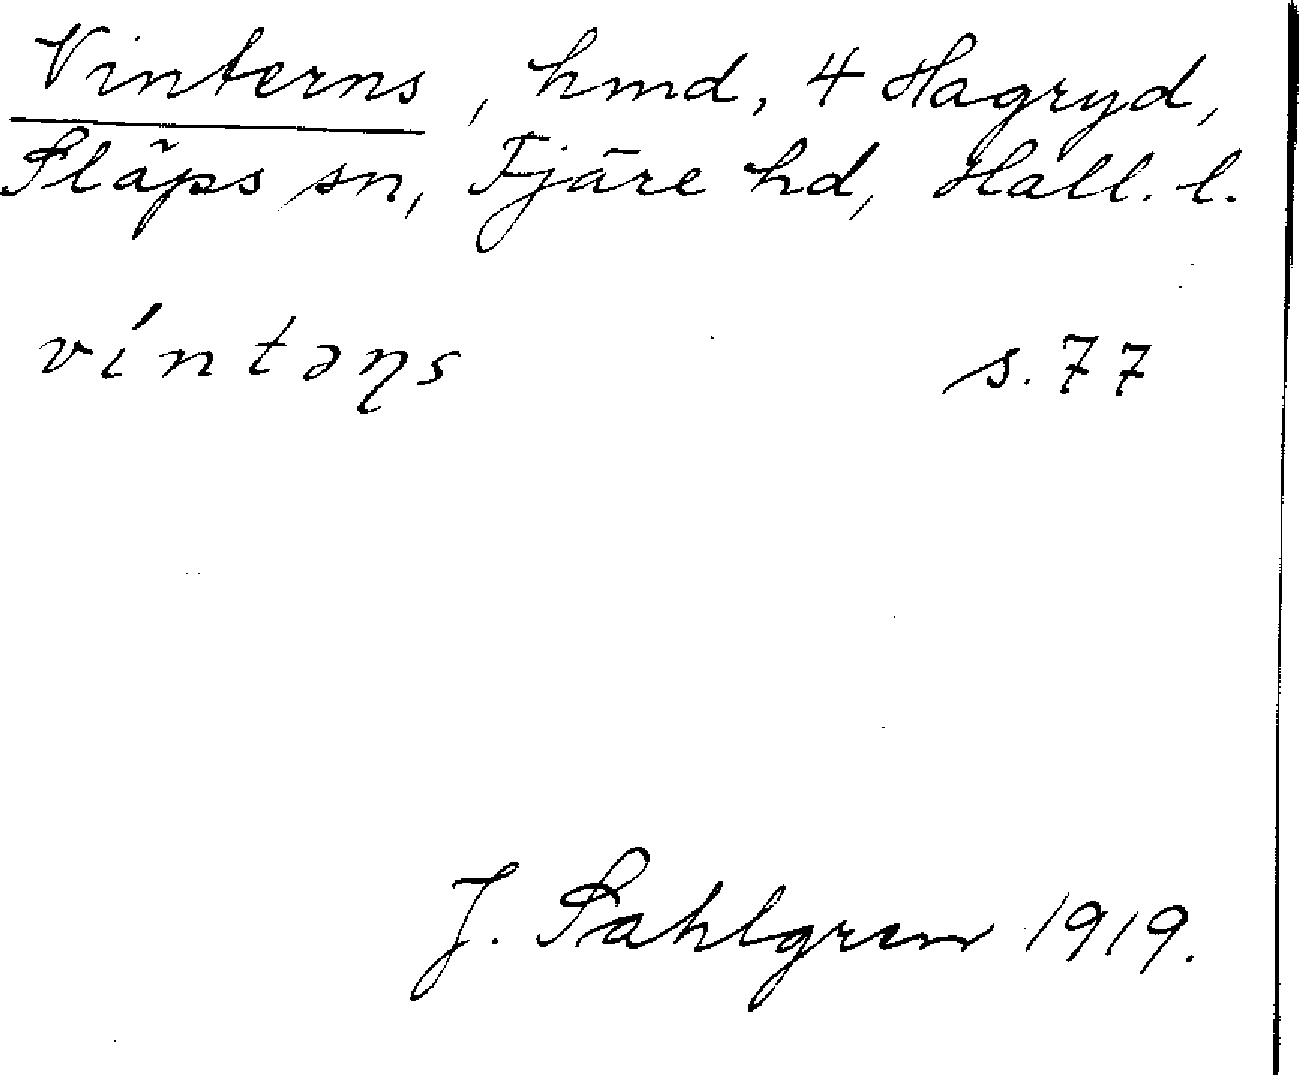 Vinterns, hmd, 4 Hagryd,
Släps sn, Fjäre hd, Hall. l.
víntəɳs s. 77
J. Sahlgren 1919.